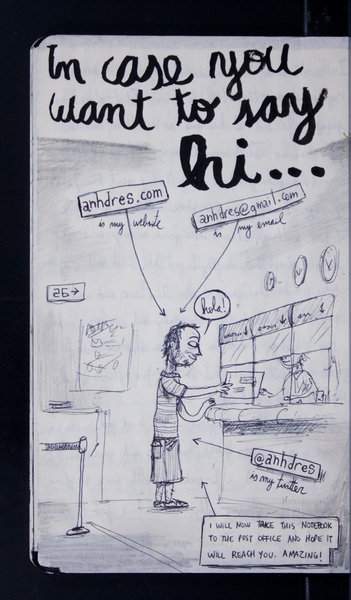 In case you
want to say
hi...
anhdres.com
is my website
anhdres@gmail.com
is my email
hola!
@anhdres
is my twitter
I WILL NOW TAKE THIS NOTEBOOK
TO THE POST OFFICE AND HOPE IT
WILL REACH YOU. AMAZING!